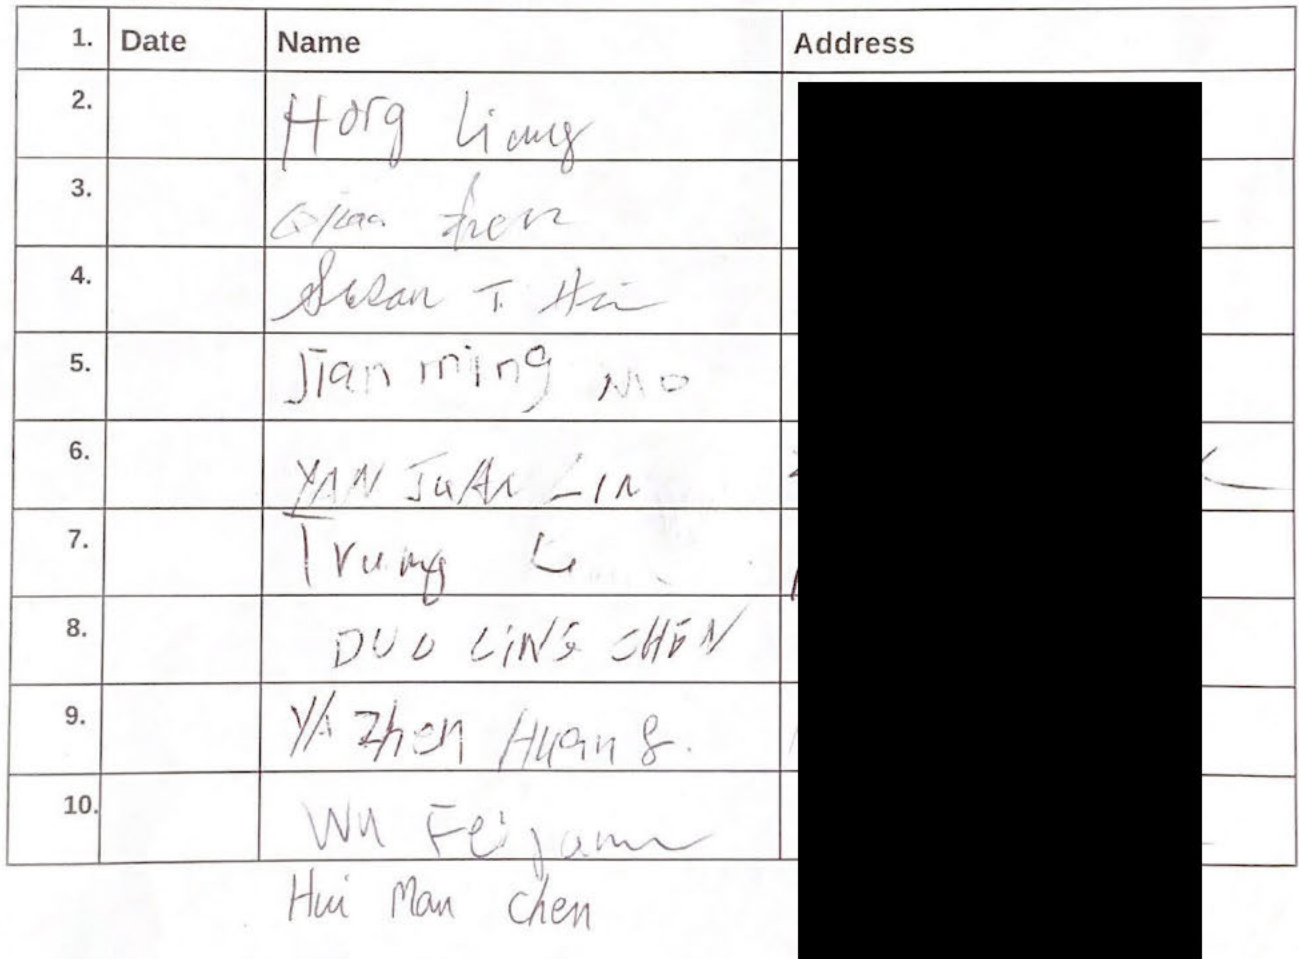 1. Date Name Address
2. Hong Liang
3. Zhen
4. Susan T.
5. Jian ming mo
6. YAN JUAN LIN
7. Trung Le
8. DUO LiNG CHEN
9. YA Zhen Huang
10. Wu Fei
Hui Man Chen